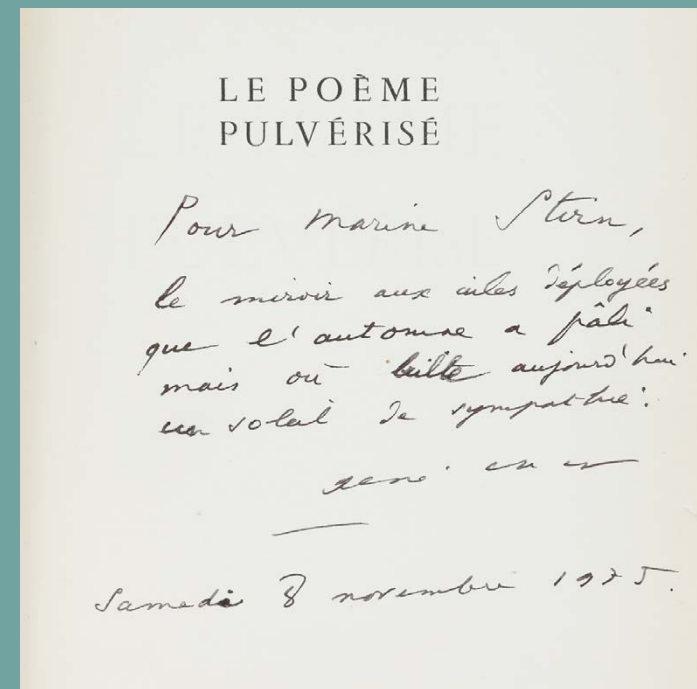 LE POÈME
PULVÉRISÉ
Pour Marine Stern,
le miroir aux ailes déployées
que l'automne a pâli
mais où brille aujourd'hui
un soleil de sympathie.
René Char
Samedi 8 novembre 1975.